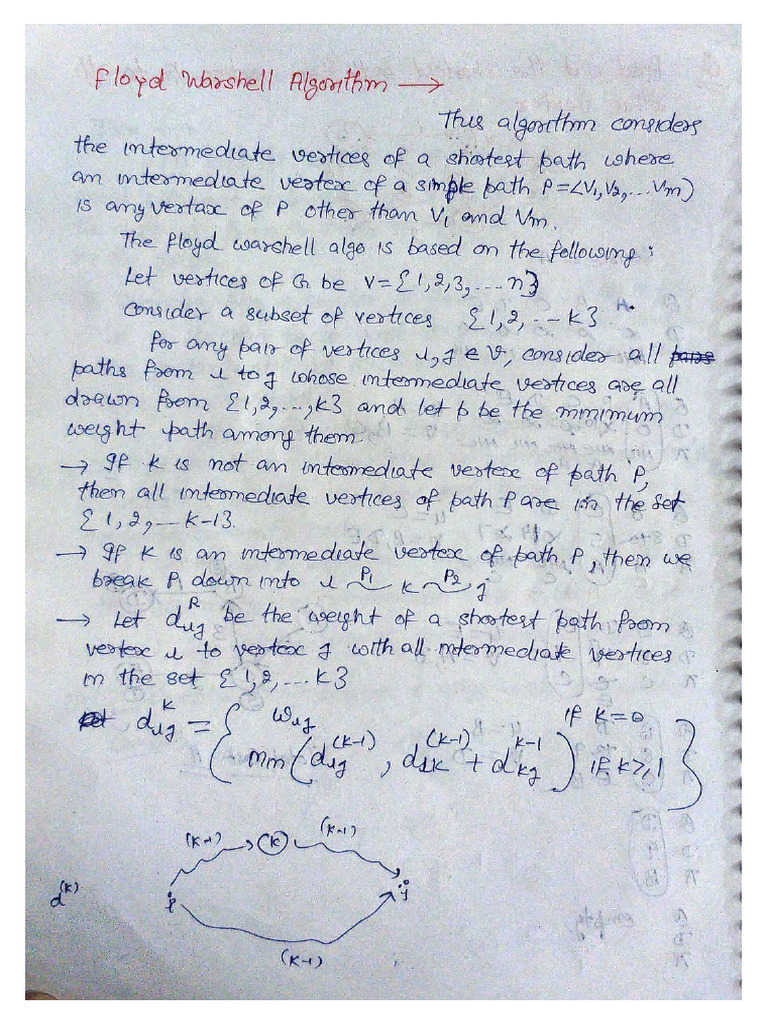 Floyd Warshell Algorithm →
This algorithm considers
the intermediate vertices of a shortest path where
an intermediate vertex of a simple path P=<V1,V2,...Vm)
is any vertax of P other than V1 and Vm.
The floyd warshell algo is based on the following :
Let vertices of G be V={1,2,3,....n}
consider a subset of vertices {1,2,...k}
For any pair of vertices i,j ∈ V, consider all
paths from i to j whose intermediate vertices are all
drawn from {1,2,...,k} and let p be the minimum
weight path among them.
→ If k is not an intermediate vertex of path P,
then all intermediate vertices of path P are in the set
{1,2,...k-1}.
→ If k is an intermediate vertex of path P, then we
break P down into i P1 k P2 j
→ Let d_ij^k be the weight of a shortest path from
vertex i to vertex j with all intermediate vertices
in the set {1,2,...k}
d_ij^k = { w_ij if k=0
min(d_ij^(k-1), d_ik^(k-1) + d_kj^k-1) if k≥1 }
(k-1) k (k-1)
d^(k) i j
(k-1)